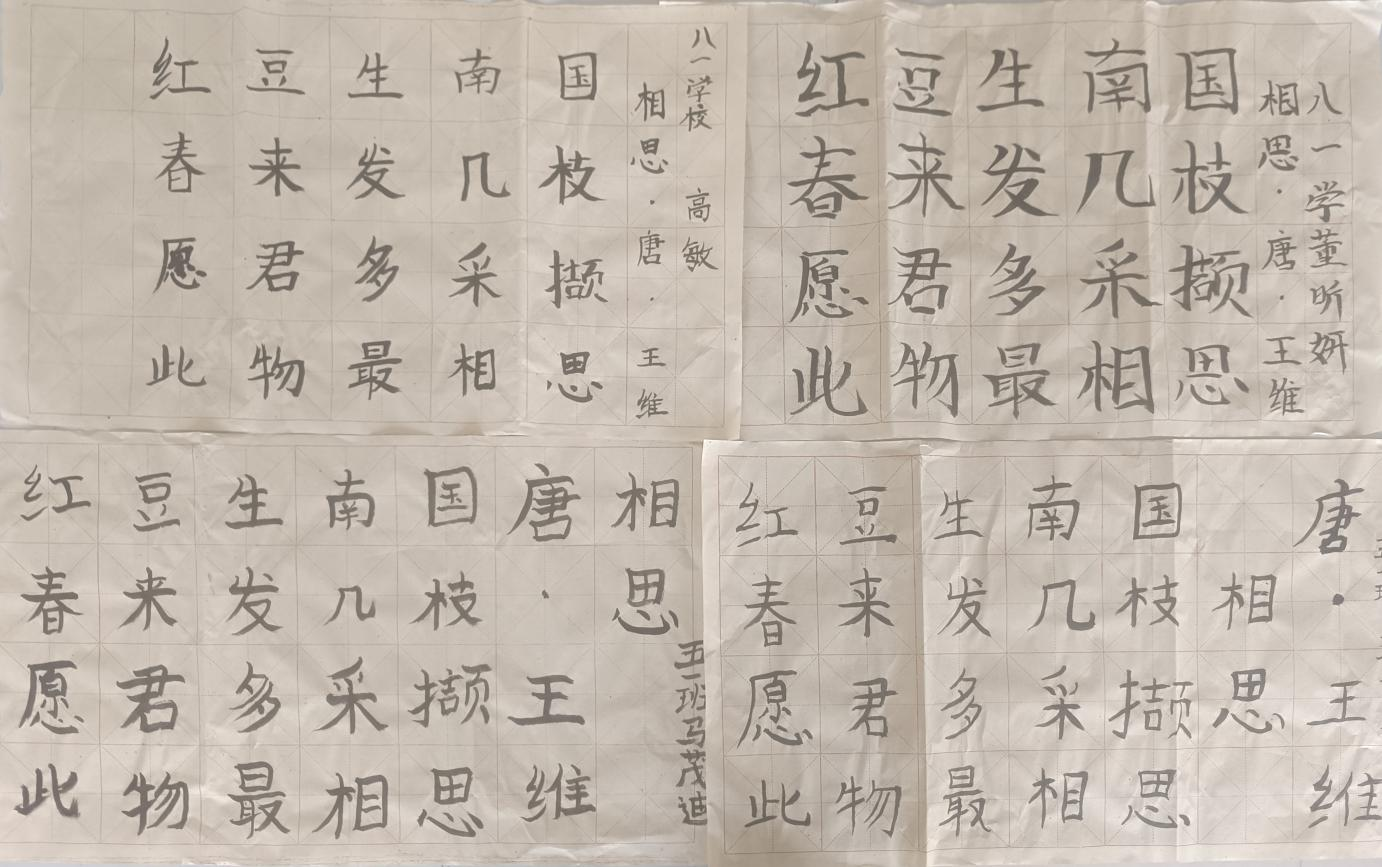 红豆生南国
春来发几枝
愿君多采撷
此物最相思
相思·唐·王维
八一学校 高敏
红豆生南国
春来发几枝
愿君多采撷
此物最相思
相思·唐·王维
八一学董昕妍
红豆生南国
春来发几枝
愿君多采撷
此物最相思
唐·王维
相思
五一班马茂迪
红豆生南国
春来发几枝
愿君多采撷
此物最相思
相思
唐·王维